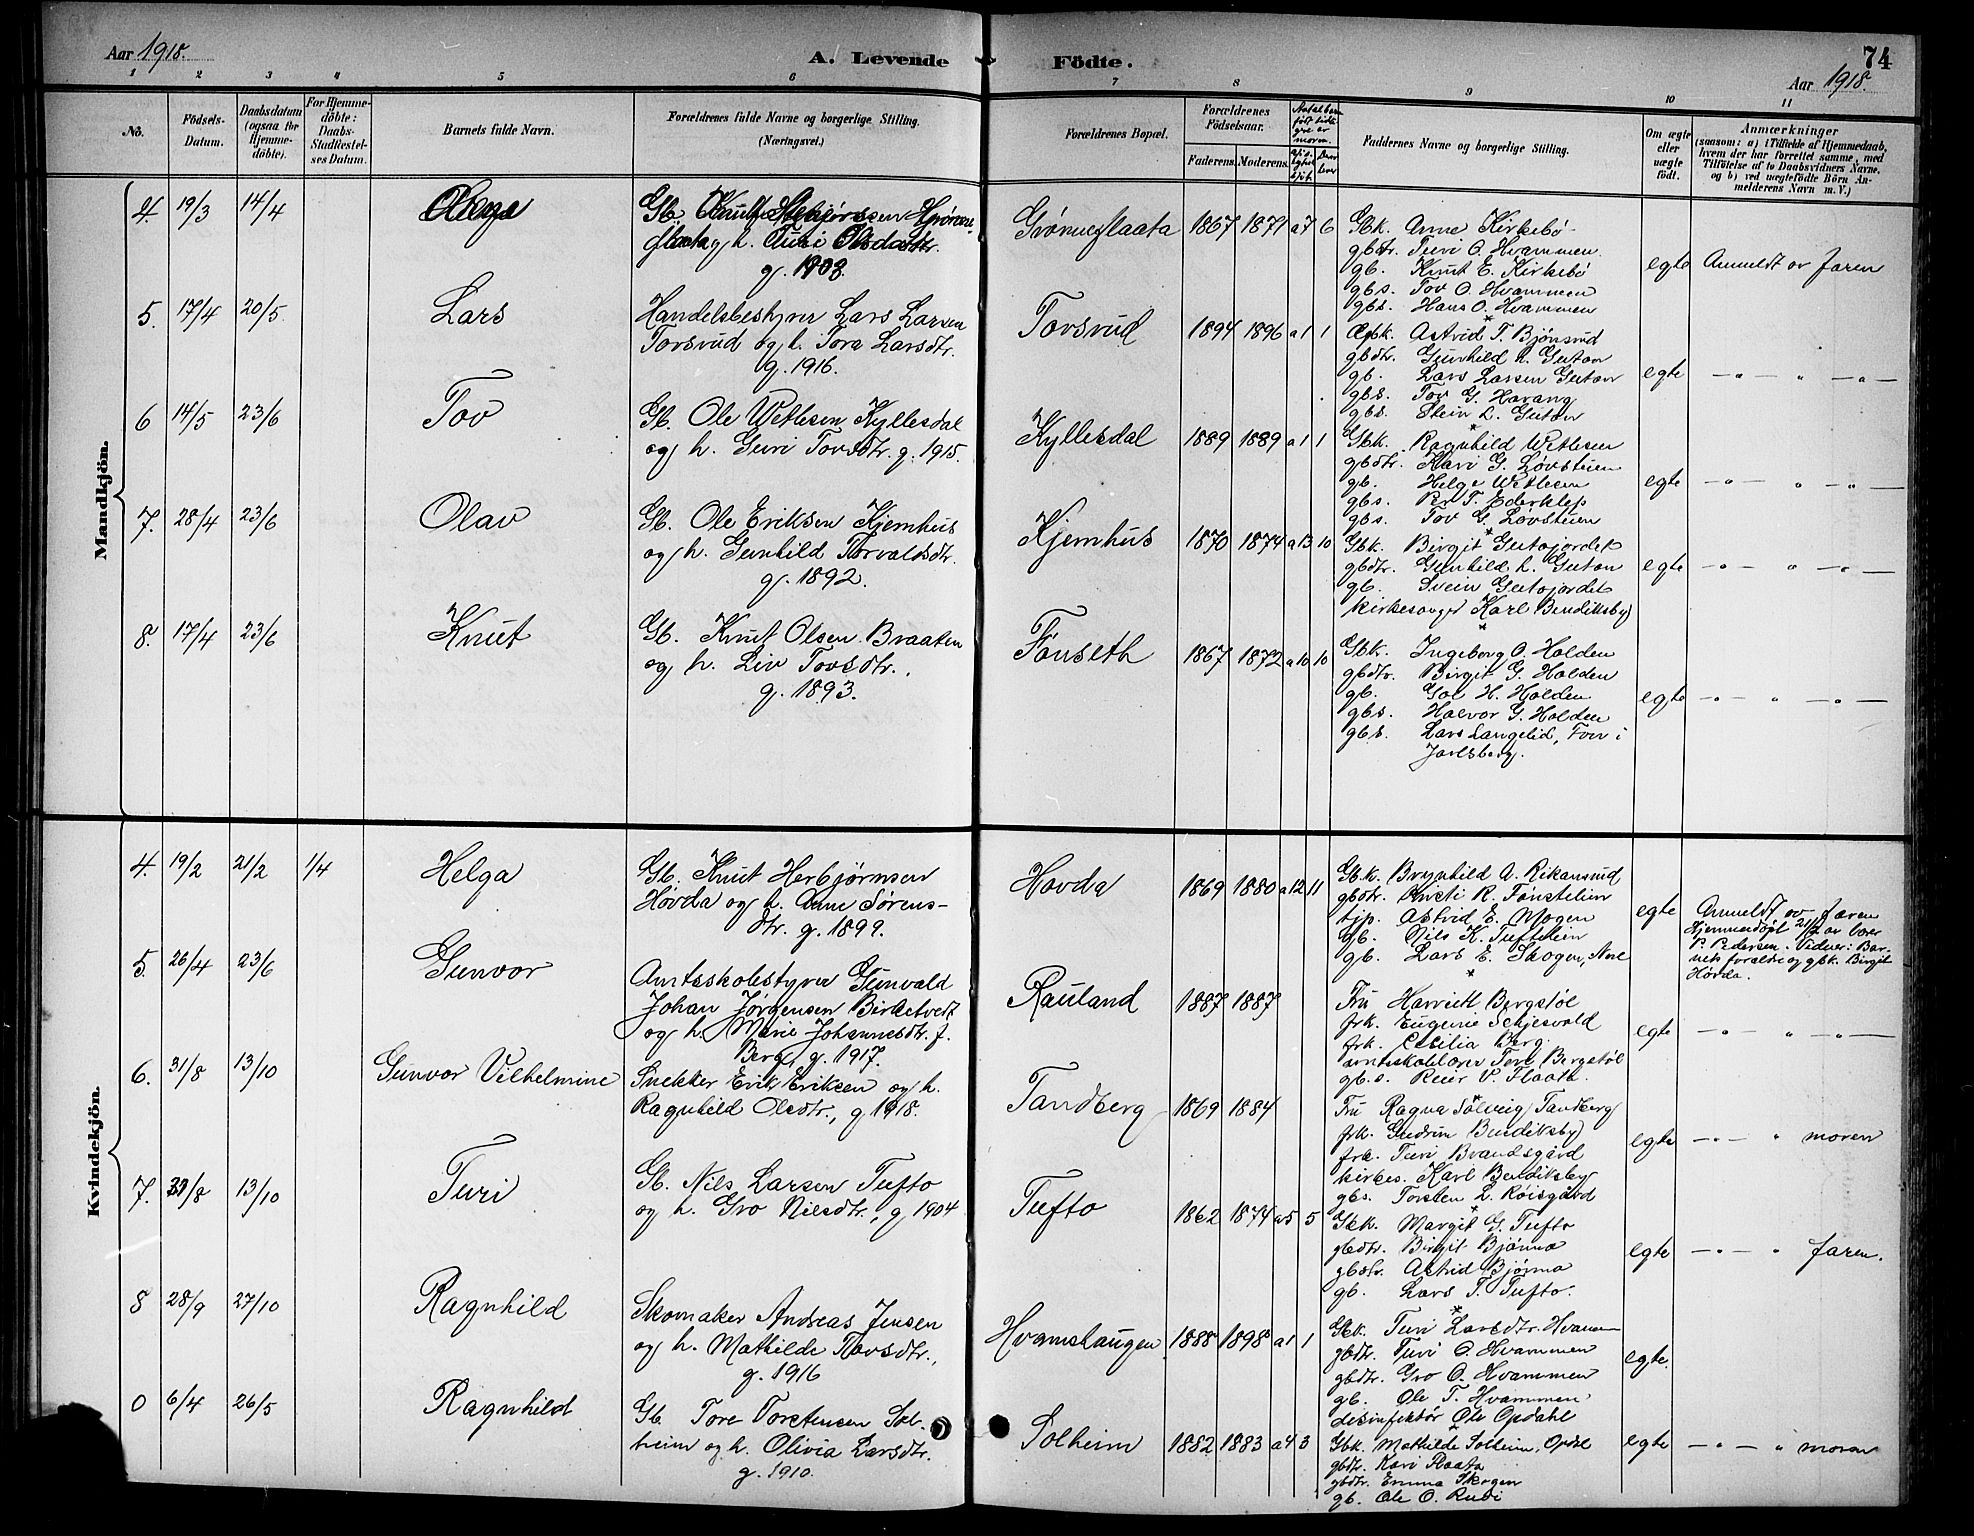 Aar 1918.
A. Levende Födte.
74
Aar 1918.
1 2 3 4 5 6 7 8 9 10 11
No.
Födsels-Datum.
Daabsdatum (ogsaa for Hjemme-döbte).
For Hjemme-döbte: Daabs-Stadfæstel-ses Datum.
Barnets fulde Navn.
Forældrenes fulde Navne og borgerlige Stilling. (Næringsvei.)
Forældrenes Bopæl.
Forældrenes Födselsaar.
Faderens. Moderens.
Faddernes Navne og borgerlige Stilling.
Om ægte eller uægte födt.
Anmærkninger
(saasom: a) i Tilfælde af Hjemmedaab,
hvem der har forrettet samme, med
Tilföielse af to Daabsvidners Navne,
og b) ved uægtefödte Börn An-
melderens Navn m. V.)
Mandkjön.
4. 19/3 14/4
Gb. Knut
flaata og h. Turi
g. 1908.
Grønneflaata 1867 1871 a7 6
Gbk. Arne Kirkebø
gbdtr. Turi O. Hvammen
gb. Knut E. Kirkebø
gbs. Tov O. Hvammen
gbs. Hans O. Hvammen
egte Anmeldt av faren
5. 17/4 20/5 Lars
Handelsbestyrer Lars Larsen
Tovsrud og h. Tora Larsdtr.
g. 1916.
Tovsrud 1894 1896 a1 1
Gbk. Astrid T. Bjønsrud
gbdtr. Gunhild L. Guton
gb. Lars Larsen Guton
gbs. Tov G. Havang
gbs. Stein L. Guton
egte
6 14/5 23/6 Tov
Gb. Ole Wetlesen Kyllesdal
og h. Guri Tovsdtr. g. 1915.
Kyllesdal 1889 1889 a1 1
Gbk. Ragnhild Wetlesen
gbdtr. Kari G. Løvstuen
gb. Helge Wetlesen
gbs. Per T. Ederklep
gbs. Tov G. Løvstuen
egte
7. 28/4 23/6 Olav
Gb. Ole Eriksen Kjemhus
og h. Gunhild Torvaldsdtr.
g. 1892.
Kjemhus 1870 1874 a13 10
Gbk. Birgit Gutojordet
gbdtr. Gunhild L. Guton
gb. Svein Gutojordet
kirkesanger Karl Bendiksby
egte
8. 17/4 23/6 Knut
Gb. Knut Olsen Braaten
og h. Liv Tovsdtr.
g. 1893.
Fønseth 1867 1872 a10 10
Gbk. Ingeborg O. Holden
gbdtr. Birgit G. Holden
gb. Gol H. Holden
gbs. Halvor G. Holden
gbs. Lars Langelid, Fon i
Jarlsberg.
egte
Kvindekjön.
4. 19/2 21/2 1/4 Helga
Gb. Knut Herbjørnsen
Hovda og h. Anne Sørens-
dtr. g. 1899.
Hovda 1869 1880 a12 11
Gbk. Brynhild A. Rikansrud
gbdtr. Kristi R. Fønstelien
tjp. Astrid E. Mogen
gb. Nils K. Tuftelien
gb. Lars E. Skogen, Nore
egte Anmeldt av faren
Hjemmedøpt 21/2 av lærer
P. Pedersen. Vidner: Bar-
nets forældre og gbk. Birgit
Hovda.
5. 26/4 23/6 Gunvor
Amtsskolestyrer Gunvald
Johan Jørgensen Birketvedt
og h. Marie Johannesdtr. f.
Berg, g. 1917.
Rauland 1887 1887
Fru Harriett Bergstøl
frk. Eugenie Schjesvold
frk. Cecilia Berg
amtsskolelærer Tore Bergstøl
gb.s. Reier V. Flaata.
egte
6. 31/8 13/10 Gunvor Vilhelmine
Snekker Erik Eriksen og h.
Ragnhild Olsdtr., g. 1918.
Tandberg 1869 1884
Fru Ragna Solveig Tandberg
frk. Gudrun Bendiksby
frk. Turi Brandsgård
kirkes. Karl Bendiksby
gbs. Torsten L. Røisgård
egte moren
7. 13/10 Turi
Gb. Nils Larsen Tufto
og h. Gro Nilsdtr., g. 1904
Tufto 1862 1874 a5 5
Gbk. Margit G. Tufto
gbdtr. Birgit Bjønna
gbdtr. Astrid Bjønna
gb. Lars T. Tufto.
egte faren.
8 28/9 27/10 Ragnhild
Skomaker Andreas Jensen
og h. Mathilde Tovsdtr.,
g. 1916
Hvamshaugen 1888 1898 a1 1
Gbk. Turi Larsdtr. Hvamm
gbdtr. Turi O. Hvammen
gbdtr. Gro O. Hvammen
gb. Ole T. Hvammen
desinfektør Ole Opdahl
egte.
0 6/4 26/5 Ragnhild
Gb. Tore Torstensen Sol-
heim og h. Olivia Larsdtr.
g. 1910.
Solheim 1882 1883 a4 3
Gbk. Mathilde Solheim, Opdal
gbdtr. Kari Flaata
gbdtr. Emma Skogen
gb. Ole O. Rudi
egte moren